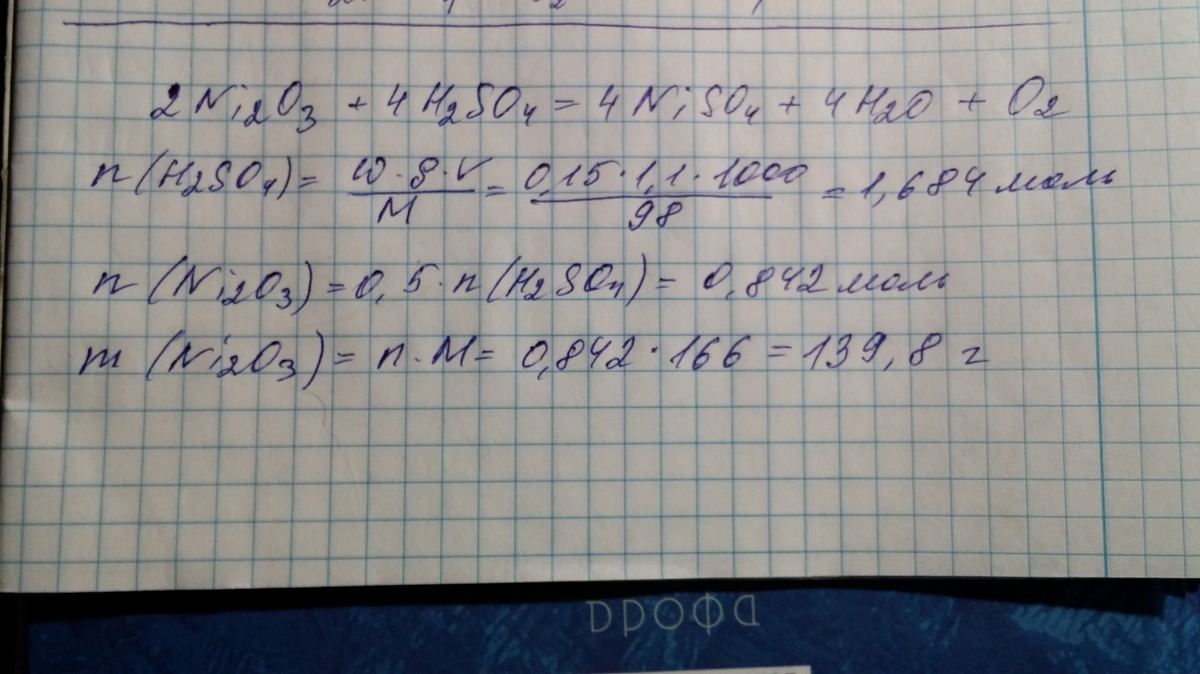 2Ni₂O₃ + 4H₂SO₄ = 4NiSO₄ + 4H₂O + O₂
n(H₂SO₄) = ω·ρ·V/M = 0,15·1,1·1000/98 = 1,684 моль
n(Ni₂O₃) = 0,5·n(H₂SO₄) = 0,842 моль
m(Ni₂O₃) = n·M = 0,842·166 = 139,8 г
дрофа